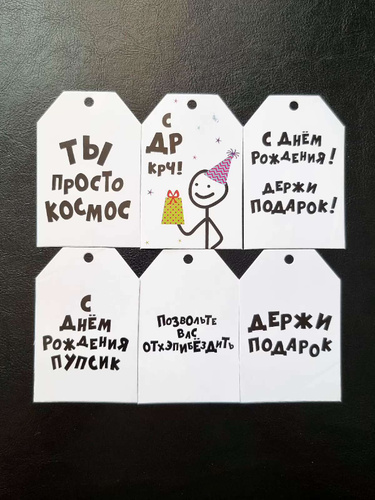 ТЫ
ПРОСТО
КОСМОС
С
ДР
КРЧ!
С ДНЁМ
РОЖДЕНИЯ!
ДЕРЖИ
ПОДАРОК!
С
ДНЁМ
РОЖДЕНИЯ
ПУПСИК
ПОЗВОЛЬТЕ
ВАС
ОТХЭПИБЁЗДИТЬ
ДЕРЖИ
ПОДАРОК